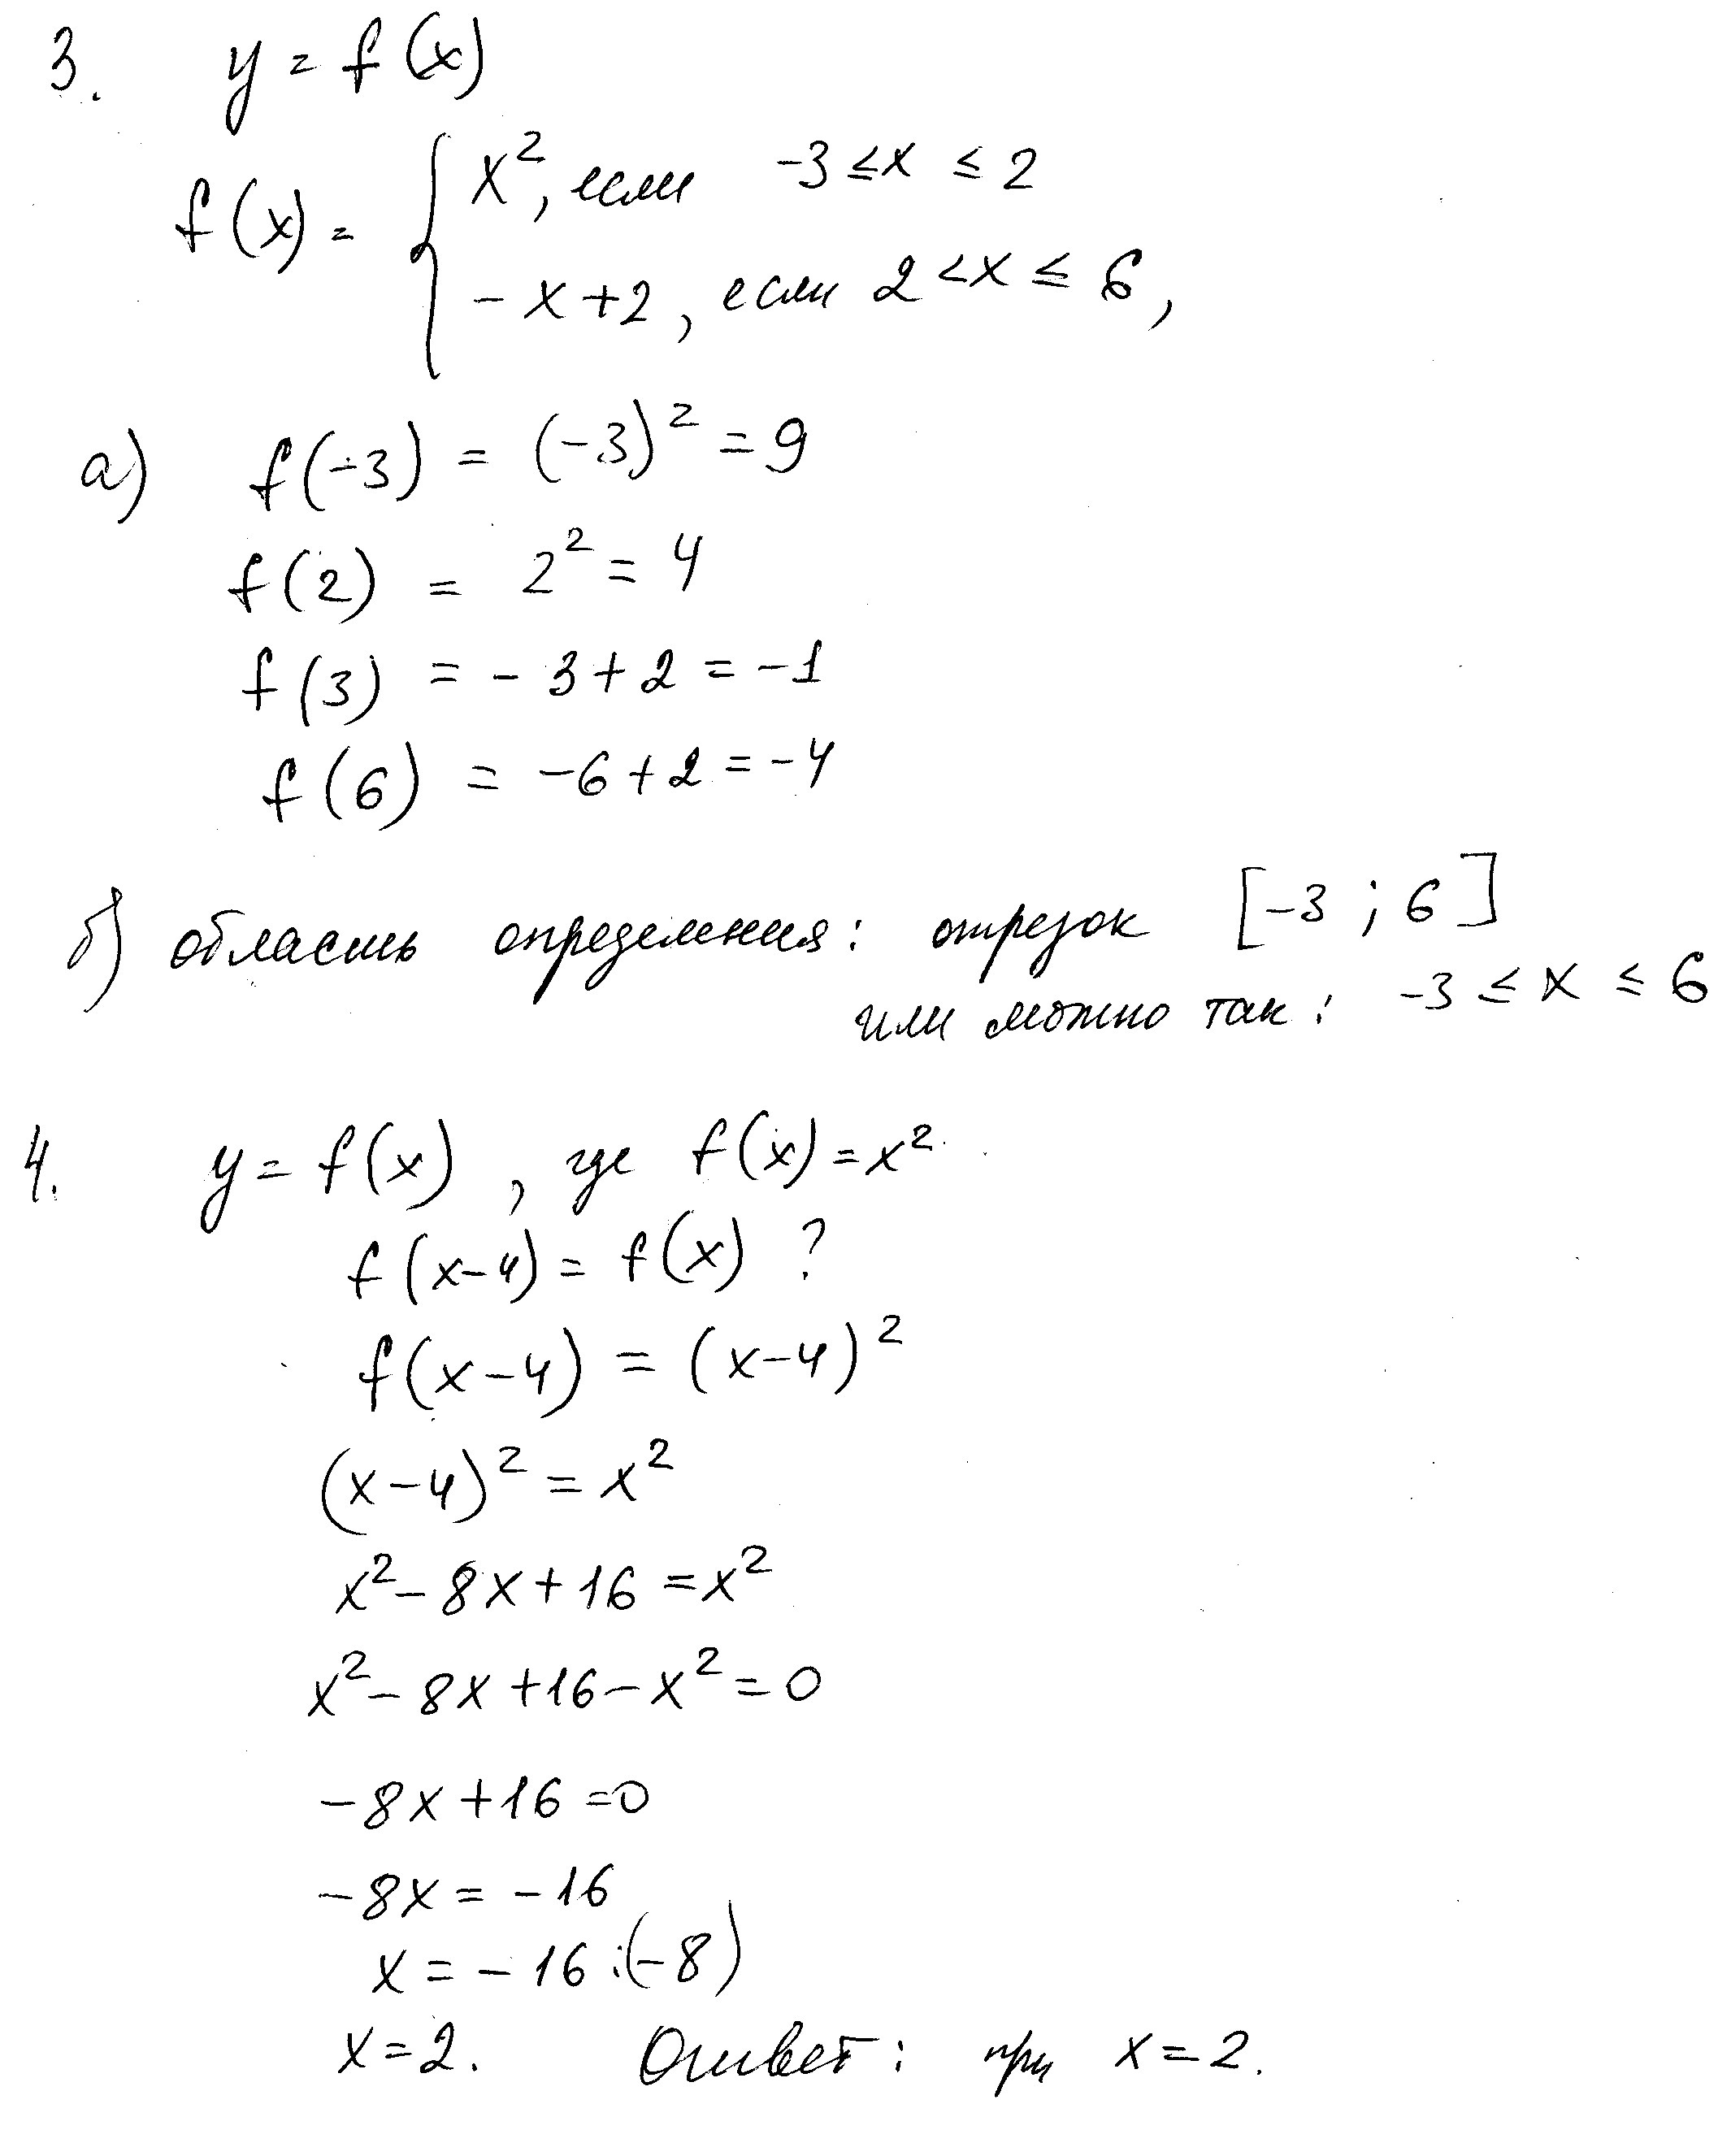 3. y = f(x)
f(x) = { x², если -3 ≤ x ≤ 2
- x + 2, если 2 < x ≤ 6,
а) f(-3) = (-3)² = 9
f(2) = 2² = 4
f(3) = - 3 + 2 = -1
f(6) = -6 + 2 = -4
б) область определения: отрезок [-3 ; 6]
или можно так: -3 ≤ x ≤ 6
4. y = f(x), где f(x) = x².
f(x-4) = f(x) ?
f(x-4) = (x-4)²
(x-4)² = x²
x² - 8x + 16 = x²
x² - 8x + 16 - x² = 0
-8x + 16 = 0
-8x = -16
x = -16 : (-8)
x = 2. Ответ: при x = 2.